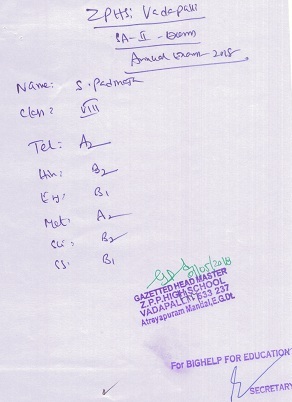 ZPHS: Vadapalli
SA-II-Exam
Annual Exam 2018
Name: S. Padmesh
Class: VIII
Tel: A2
Hin: B2
Eng: B1
Mat: A2
Sci: B2
SS: B1
/05/2018
GAZETTED HEAD MASTER
Z.P.P. HIGH SCHOOL
VADAPALLI-533 237
Atreyapuram Mandal, E.G.Dt.
For BIGHELP FOR EDUCATION
SECRETARY